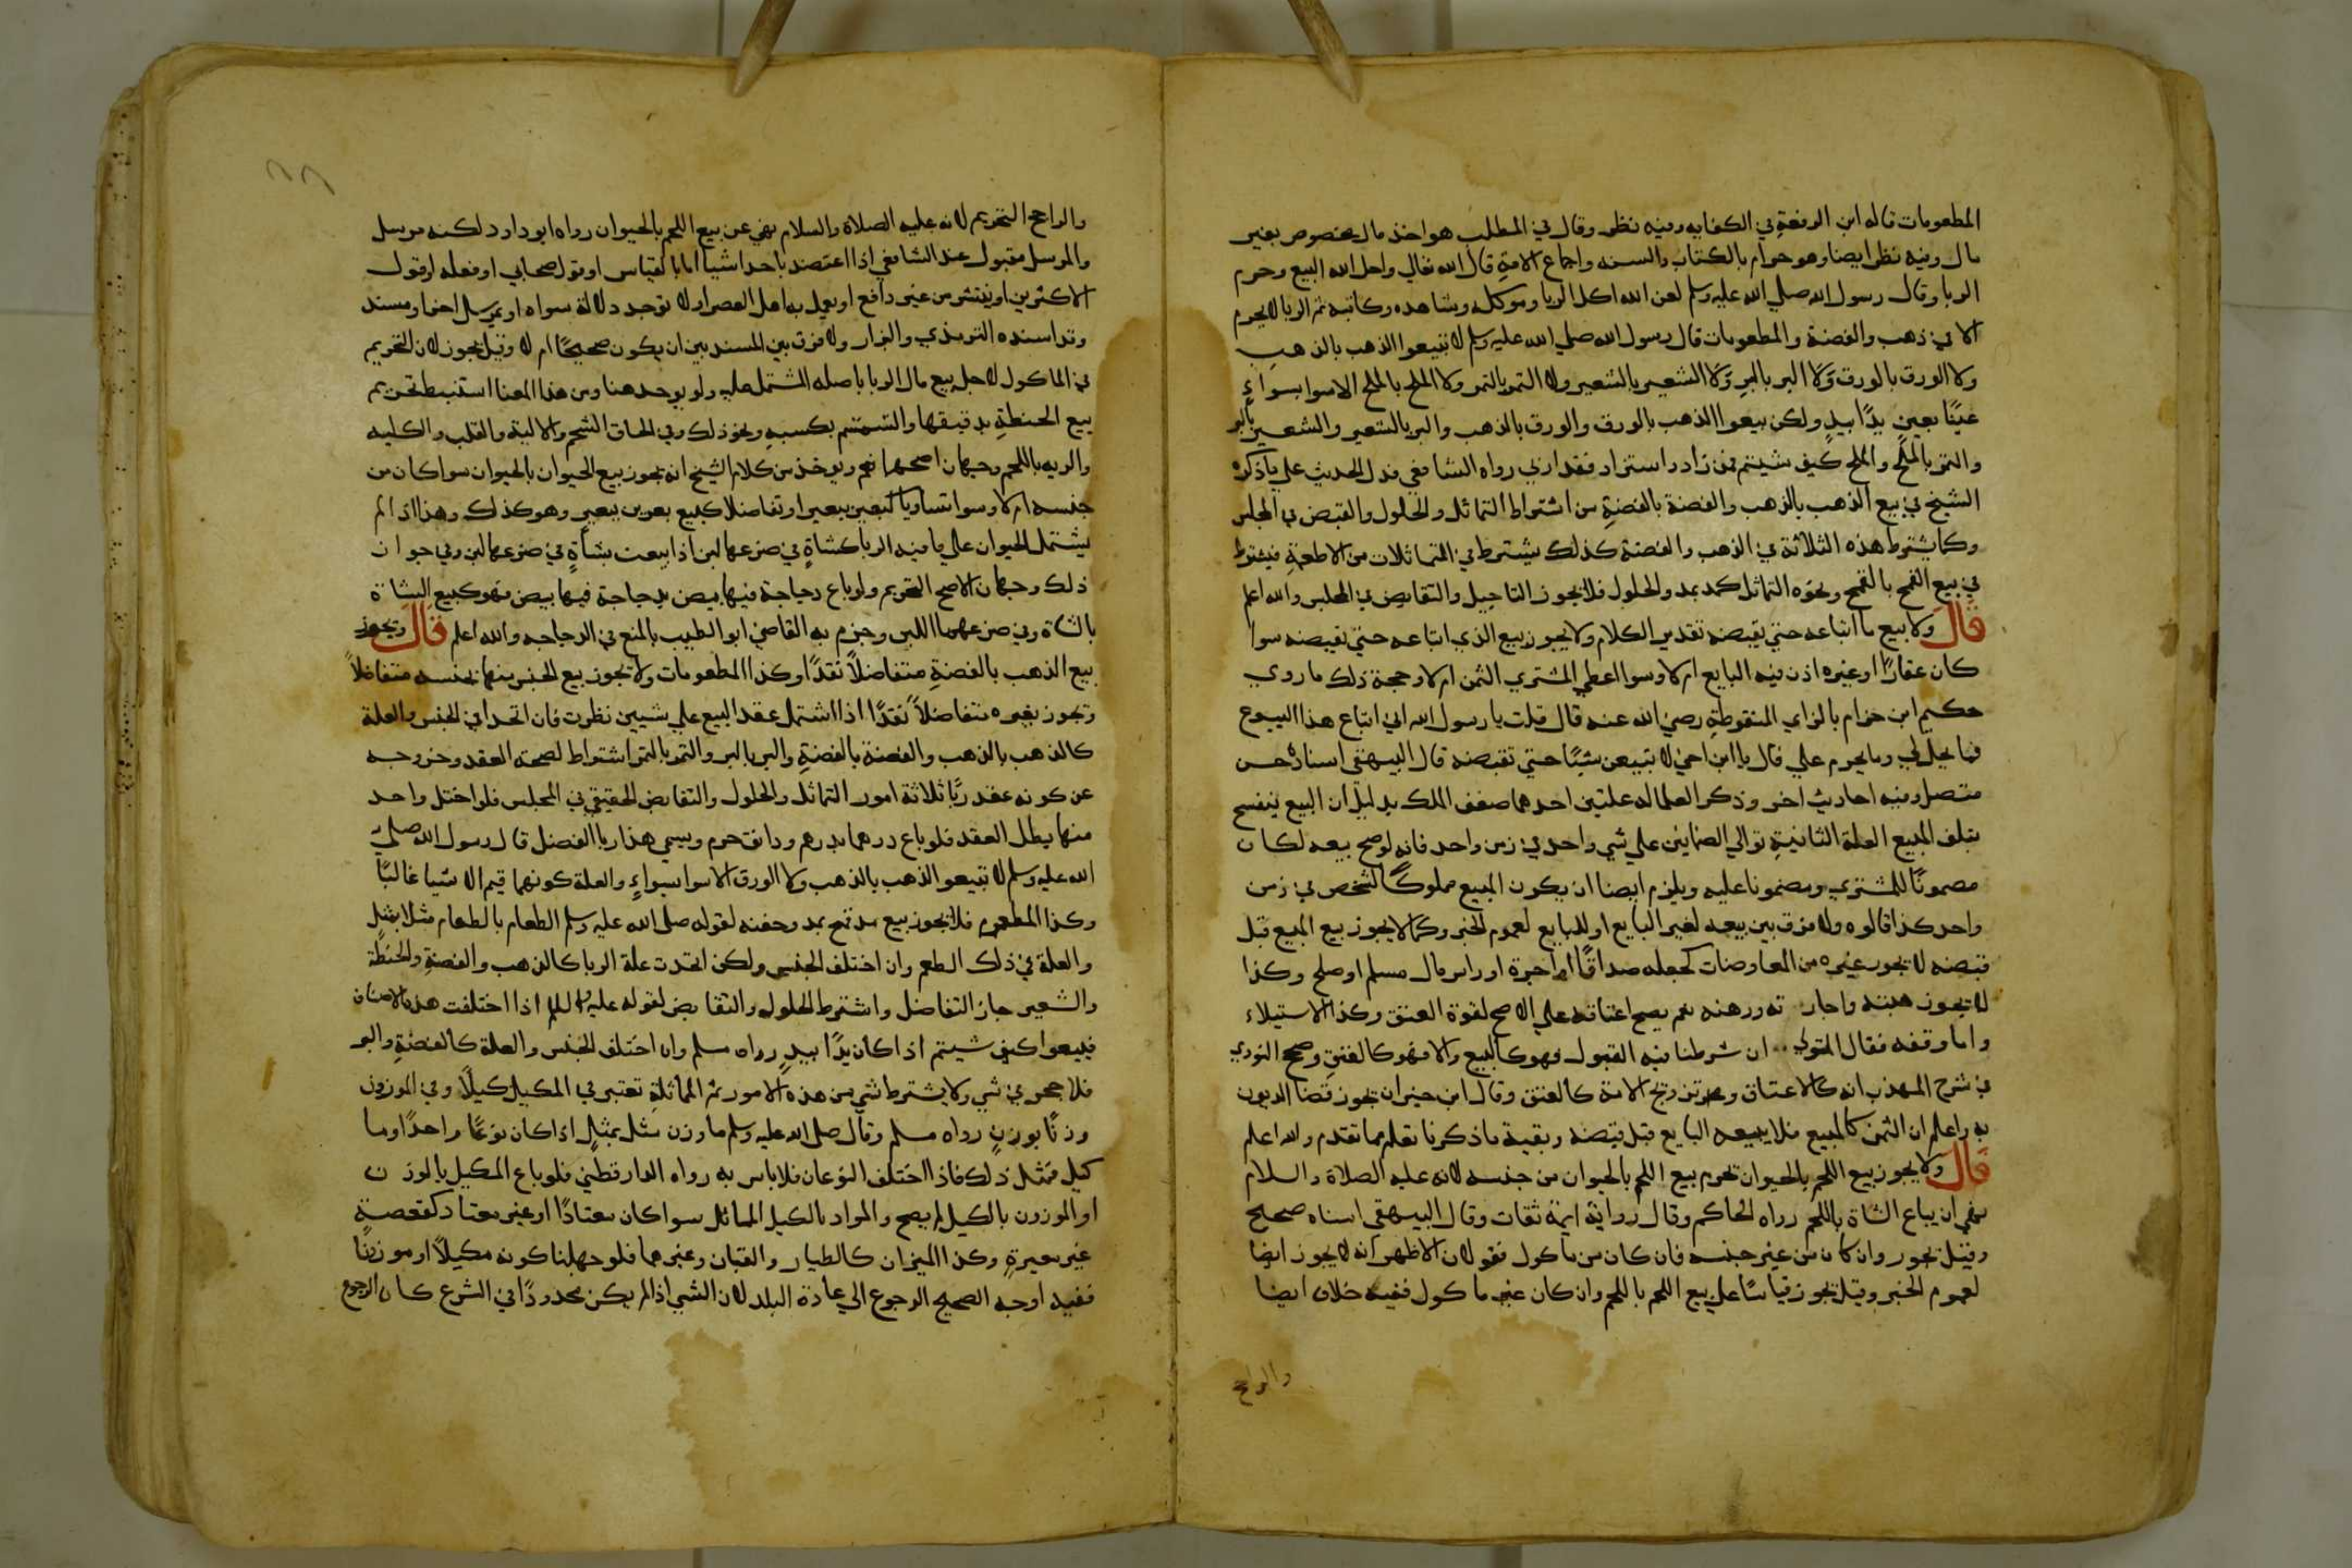 المطعومات قاله ابن الرفعة في الكفايه وفيه نظر وقال في المطلب هو اخذ مال مخصوص بغير
مال وفيه نظر ايضا وهو حرام بالكتاب والسنه واجماع الامة قال الله تعالي واحل الله البيع وحرم
الربا وقال رسول الله صلي الله عليه وسلم لعن الله اكل الربا وموكله وشاهده وكاتبه ثم الربا لا يحرم
الا في ذهب والفضة والمطعومات قال رسول الله صلي الله عليه وسلم لا تبيعوا الذهب بالذهب
ولا الورق بالورق ولا البر بالبر ولا الشعير بالشعير ولا التمر بالتمر ولا الملح بالملح الا سوا بسواءٍ
عينًا بعينٍ يدًا بيدٍ ولكن بيعوا الذهب بالورق والورق بالذهب والبر بالشعير والشعير بالبر
والتمر بالملح والملح كيف شيتم فمن زاد او استزاد فقد اربي رواه الشافعي فدل الحديث علي ما ذكره
الشيخ في بيع الذهب بالذهب والفضة بالفضةِ من اشتراط التماثل والحلول والقبض في المجلس
وكما يشترط هذه الثلاثة في الذهب والفضة كذلك يشترط في المتماثلات من الاطعمةِ فيشترط
في بيع القمح بالقمح ونحوه التماثل كمد بمد والحلول فلا يجوز التاجيل والتقابض في المجلس والله اعلم
قال ولا بيع ما ابتاعه حتي يقبضه تقدير الكلام ولا يجوز بيع الذي ابتاعه حتي يقبضه سوا
كان عقارًا او غيره اذن فيه البايع ام لا وسوا اعطي المشتري الثمن ام لا وحجة ذلك ما روي
حكيم ابن حزام بالزاي المنقوطةِ رضي الله عنه قال قلت يا رسول الله اني ابتاع هذا البيوع
فما يحل لي وما يحرم علي قال يا ابن اخي لا تبيعن شيئًا حتي تقبضه قال البيهقي اسناده حسن
متصل وفيه احاديث اخر وذكر العلما له علتين احدهما ضعف الملك بدليل ان البيع ينفسخ
بتلف المبيع العلة الثانيةِ توالي الضمانين علي شي واحد في زمن واحد فانه لو صح بيعه لكان
مضمونًا للمشتري ومضمونا عليه ويلزم ايضا ان يكون المبيع مملوكًا لشخص في زمن
واحد كذا قالوه ولا فرق بين بيعه لغير البايع او للبايع لعموم الخبر وكما لا يجوز بيع المبيع قبل
قبضه لا يجوز غيره من المعاوضات كجعله صداقًا او اجرة او راس مال مسلم او صلح وكذا
لا يجوز هبته واجارته ورهنه نعم يصح اعتاقه علي الاصح لقوة العتق وكذا الاستيلاء
واما وقفه فقال المتولي ان شرطنا فيه القبول فهو كالبيع والا فهو كالعتق وصحح النووي
في شرح المهذب انه كالاعتاق وتزويج الامة كالعتق وقال ابن خيران يجوز قضا الديون
به واعلم ان الثمن كالمبيع فلا يبيعه البايع قبل قبضه وبقية ما ذكرنا يعلم مما تقدم والله اعلم
قال ولا يجوز بيع اللحم بالحيوان تحرم بيع اللحم بالحيوان من جنسه لانه عليه الصلاة والسلام
نهي ان يباع الشاة باللحم رواه الحاكم وقال رواية ايمة ثقات وقال البيهقي اسناه صحيح
وقيل يجوز وان كان من غير جنسه فان كان من ماكول فقولان الاظهر انه لا يجوز ايضا
لعموم الخبر وقيل يجوز قياسًا علي بيع اللحم باللحم وان كان غير ماكول ففيه خلاف ايضا
والراجح
والراجح التحريم لانه عليه الصلاة والسلام نهي عن بيع اللحم بالحيوان رواه ابو داود لكنه مرسل
والمرسل مقبول عند الشافعي اذا اعتضد باحد اشيا اما بالقياس او بقول صحابي او فعله او قول
الاكثرين او ينتشر من غير دافع او يعمل به اهل العصر او لا توجد دلالة سواه او بمرسل اخر او مسند
وقد اسنده الترمذي والبزار ولا فرق بين المسند بين ان يكون صحيحًا ام لا وقيل يجوز لان التحريم
في الماكول لاجل بيع مال الربا باصله المشتمل عليه ولو يوجد هنا ومن هذا المعنا استنبط تحريم
بيع الحنطةِ بدقيقها والسمسم بكسبه ونحو ذلك وفي الحاق الشحم والالية والقلب والكليه
والريه باللحم وجهان اصحهما نعم ويوخذ من كلام الشيخ انه يجوز بيع الحيوان بالحيوان سوا كان من
جنسه ام لا وسوا تساويا كبعير ببعير او تفاضلا كبيع بعيرين ببعير وهو كذلك وهذا اذا لم
يشتمل الحيوان علي ما فيه الربا كشاةٍ في ضرعها لبن اذا بيعت بشاةٍ في ضرعها لبن وفي جواز
ذلك وجهان الاصح التحريم ولو باع دجاجة فيها بيض بدجاجة فيها بيض فهو كبيع الشاة
بالشاة وفي ضرعهما اللبن وجزم به القاضي ابو الطيب بالمنع في الدجاجه والله اعلم قال وتجوز
بيع الذهب بالفضةِ متفاضلاً نقدًا وكذا المطعومات ولا تجوز بيع الجنس منها بجنسه متفاضلاً
وتجوز بغيره متفاضلاً نقدًا اذا اشتمل عقد البيع علي شيين نظرت فان اتحدا في الجنس والعلة
كالذهب بالذهب والفضة بالفضةِ والبر بالبر والتمر بالتمر اشتراط لصحة العقد وخروجه
عن كونه عقد ربًا ثلاثة امور التماثل والحلول والتقابض الحقيقي في المجلس فلو اختل واحد
منها بطل العقد فلو باع درهما بدرهم ودانق حرم ويسمي هذا ربا الفضل قال رسول الله صلي
الله عليه وسلم لا تبيعو الذهب بالذهب ولا الورق الا سوا بسواءٍ والعلة كونهما قيم الاشيا غالبًا
وكذا المطعوم فلا يجوز بيع مد قمح بمد وحفنه لقوله صلي الله عليه وسلم الطعام بالطعام مثلا بمثل
والعلة في ذلك الطعم وان اختلف الجنس ولكن اتحدت علة الربا كالذهب والفضةِ والحنطة
والشعير جاز التفاضل واشترط الحلول والتقابض لقوله عليه السلام اذا اختلفت هذه الاصناف
فبيعوا كيف شيتم اذا كان يدًا بيدٍ رواه مسلم وان اختلف الجنس والعلة كالفضةِ والبر
فلا حجر في شي ولا يشترط شي من هذه الامور ثم المماثلةِ تعتبر في المكيل كيلاً وفي الموزون
وزنًا بوزنٍ رواه مسلم وقال صلي الله عليه وسلم ما وزن مثل بمثلٍ اذا كان نوعًا واحدًا وما
كيل فمثل ذلك فاذا اختلف النوعان فلا باس به رواه الدارقطني فلو باع المكيل بالوزن
او الموزون بالكيل لم يصح والمراد بالكيل المماثل سوا كان معتادًا او غير معتاد كقصعةٍ
غير معيرةٍ وكذا الميزان كالطيار والقبان وغيرهما فلو جهلنا كونه مكيلاً او موزونًا
ففيه اوجه الصحيح الرجوع الي عادة البلد لان الشي اذا لم يكن محدودًا في الشرع كان الرجوع